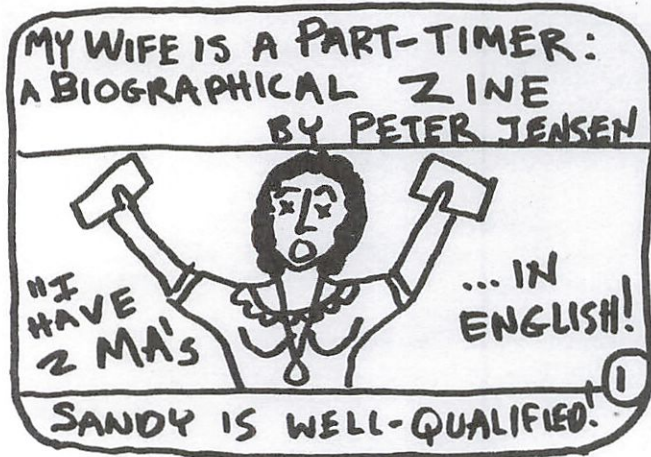 MY WIFE IS A PART-TIMER:
A BIOGRAPHICAL ZINE
BY PETER JENSEN
"I
HAVE
2 MA's
...IN
ENGLISH!
1
SANDY IS WELL-QUALIFIED!